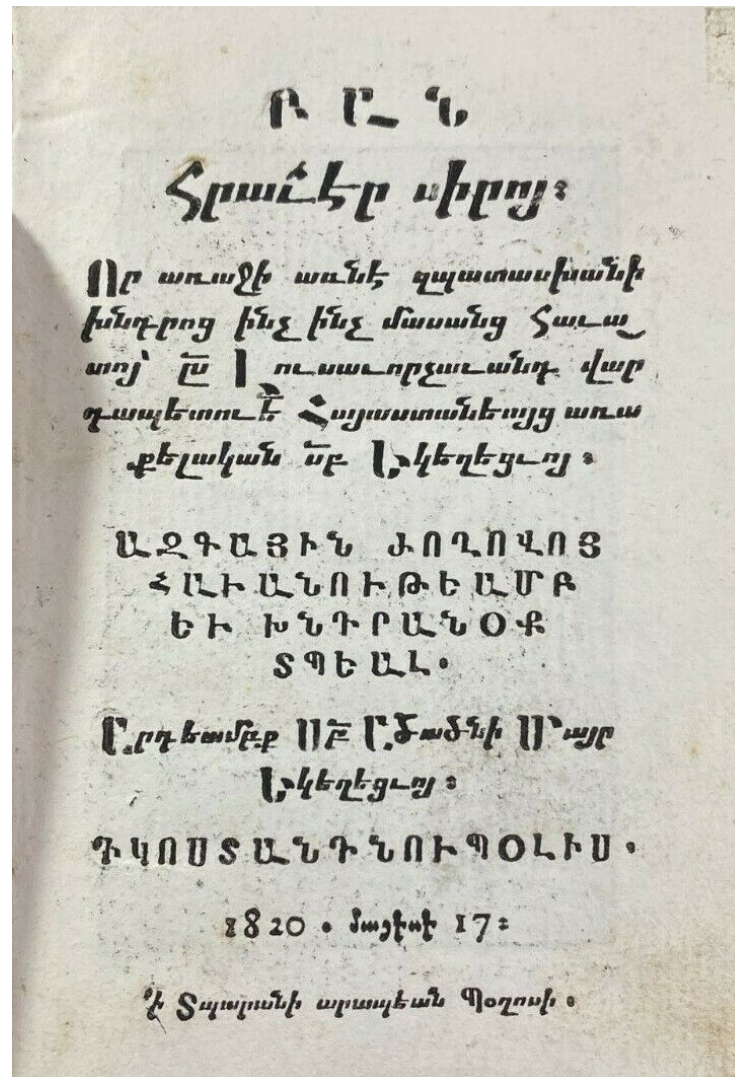 ԲԱՆ
Հրաւէր սիրոյ։
Որ առաջի առնէ զպատասխանի
խնդրոց ինչ ինչ մասանց Հաւա
տոյ՝ ըստ Լուսաւորչաւանդ վար
դապետուե Հայաստանեայց առա
քելական սբ Եկեղեցւոյ ։
ԱԶԳԱՅԻՆ ԺՈՂՈՎՈՅ
ՀԱՒԱՆՈՒԹԵԱՄԲ
ԵՒ ԽՆԴՐԱՆՕՔ
ՏՊԵԱԼ.
Արդեամբք Սբ Ածածնի Մայր
Եկեղեցւոյ ։
Ի ԿՈՍՏԱՆԴՆՈՒՊՕԼԻՍ.
1820 . մայիսի 17։
Ի Տպարանի արապեան Պօղոսի ։